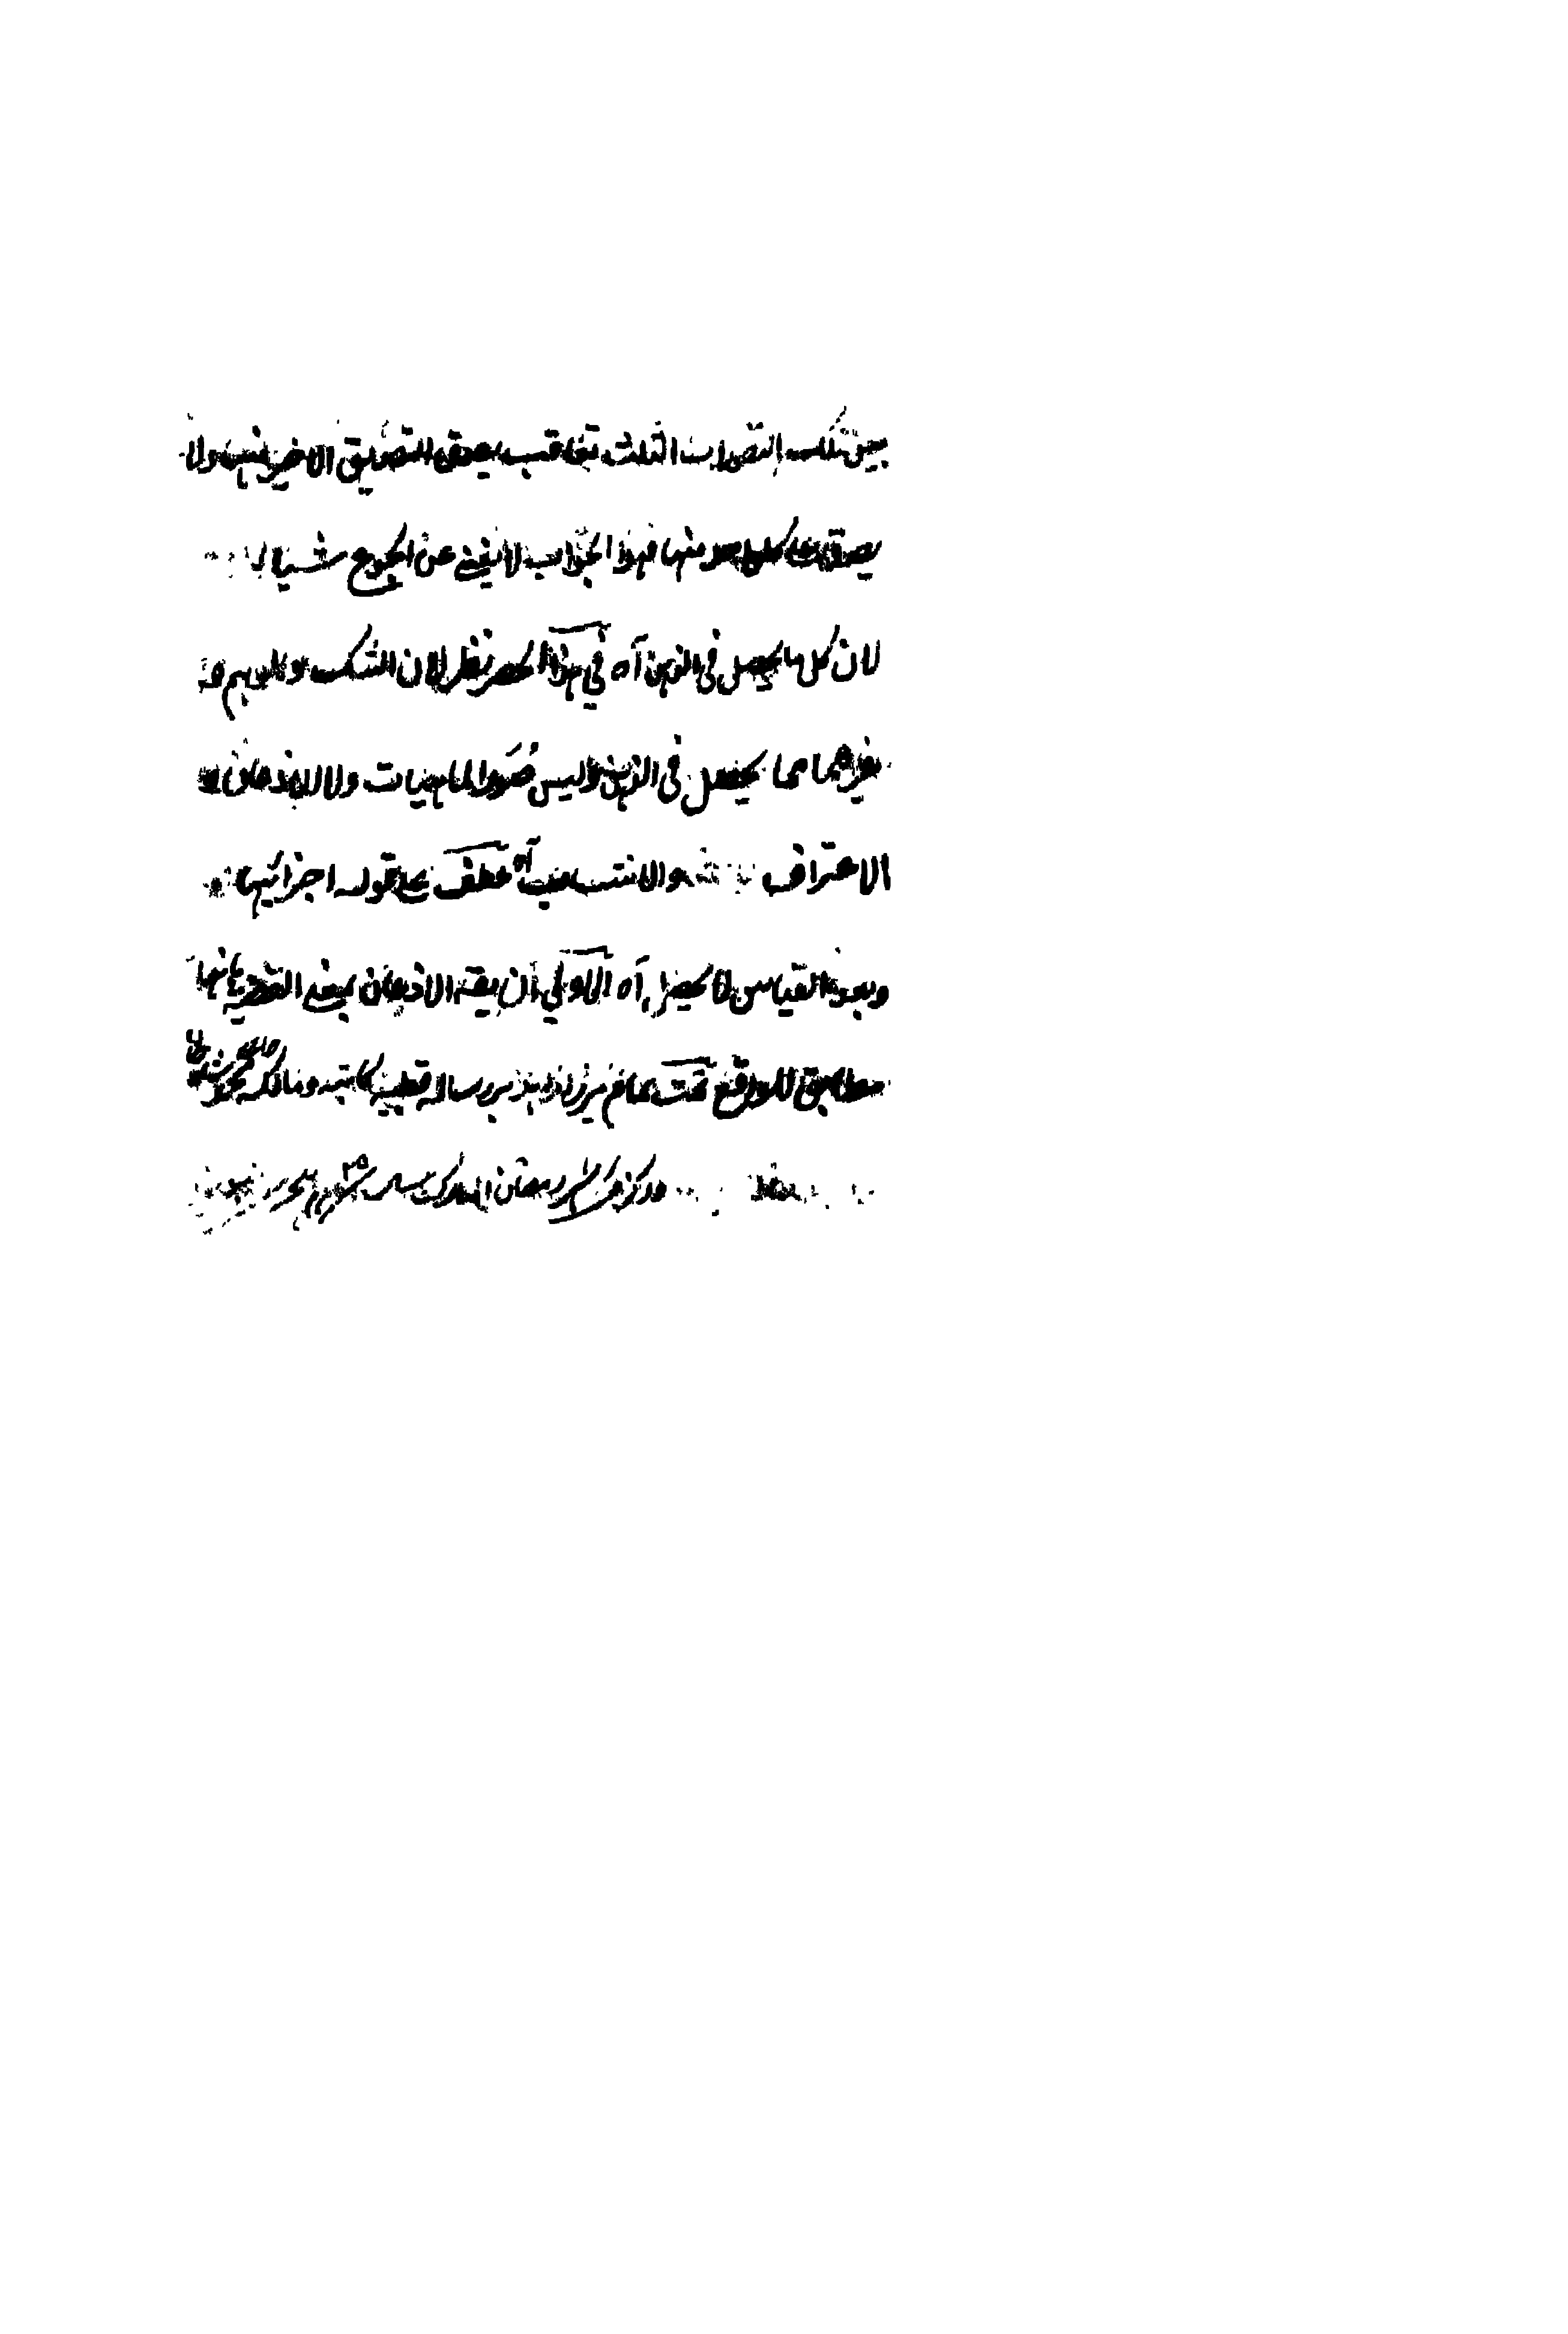 بين تلك التصورات الثلث تعاقب يصدق التصديق الاخير منها ولا
يصدق على كل واحد منها فهذا الجواب لا يغني عن الجوع شيئا
لان كل ما يحصل في الذهن آه في هذا الحصر نظر لان الشك والوهم و
غيرهما مما يحصل في الذهن وليس صور الماهيات ولا الاذعان و
الاعتراف والانتساب آه عطف على قوله اجزائها
وبعده القياس آه الاولى ان يقه الاذعان بمعنى القضية بانها
مطابق للواقع تمت تمام بر رساله قطبيه كاتبه ومالكه محمد
رمضان المبارك